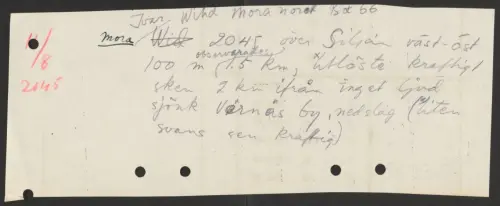 Ivar Wihd Mora norét Box 66
11/8 mora Wid 2045 över Siljan väst-öst
observerades
100 m (1.5 km, utlöste kraftigt
2045 sken 2 km ifrån inget ljud
sjönk Vårnäs by, nedslag (liten
svans sen kraftig)